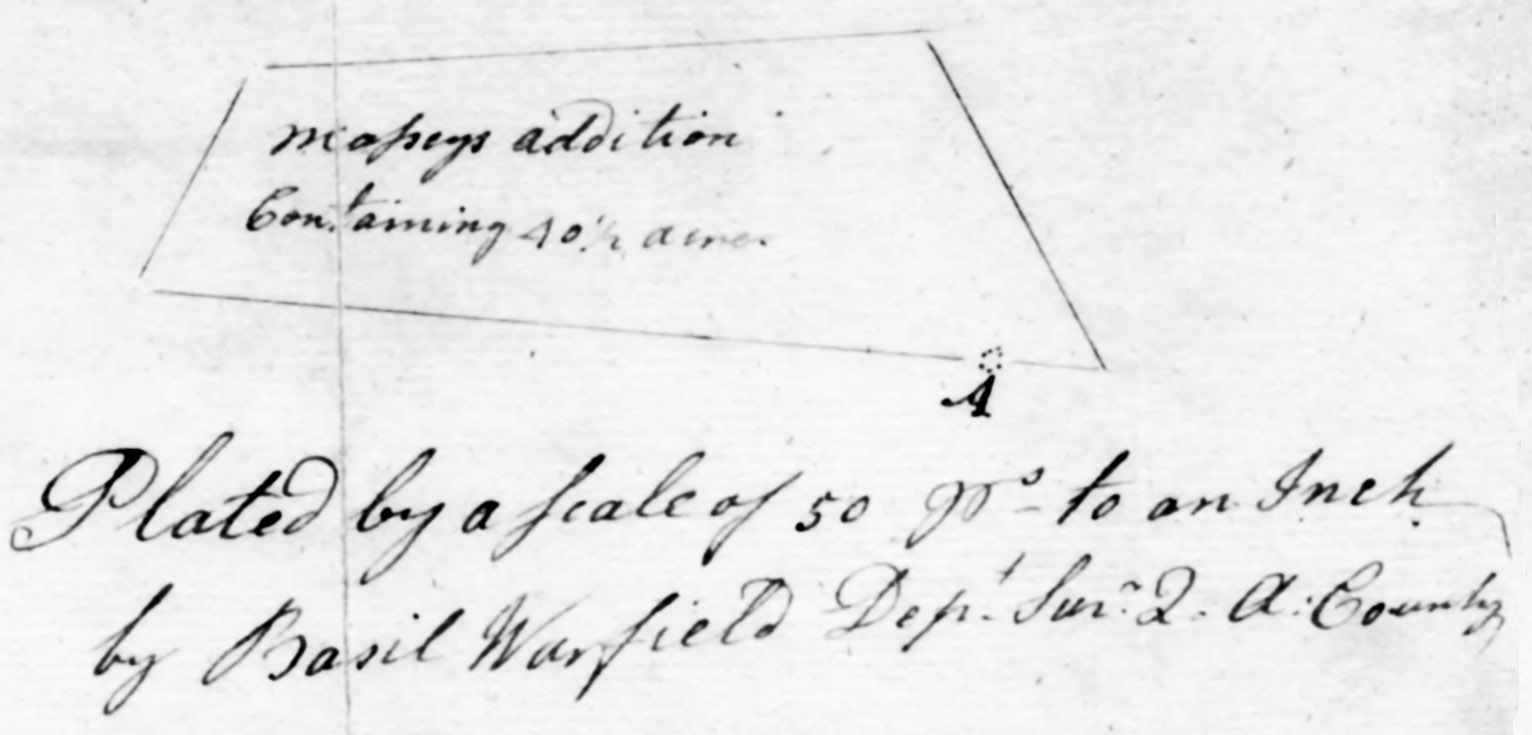 Masseys addition
Containing 40½ acres
A
Plated by a scale of 50 ps to an Inch
by Basil Warfield Dept. Surr. Q. A: County